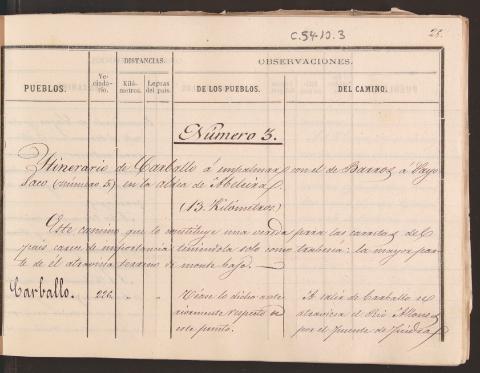 C.54-10.3
28.
DISTANCIAS.
OBSERVACIONES.
PUEBLOS.
Ve-
cinda-
rio.
Kiló-
metros.
Leguas
del pais.
DE LOS PUEBLOS.
DEL CAMINO.
Número 3.
Itinerario de Carballo á empalmar con el de Barros á Cayo
Saco (número 5) en la aldea de
(13. Kilómetros.)
Este camino que lo constituye una vereda para las carretas del
pais, carece de importancia teniéndola solo como trabesia: la mayor par-
te de él atraviesa terreno de monte bajo.
Carballo. 226. " " Véase lo dicho ante-
riormente respecto de
este punto.
A salir de Carballo se
atraviesa el Rio
por el Puente de